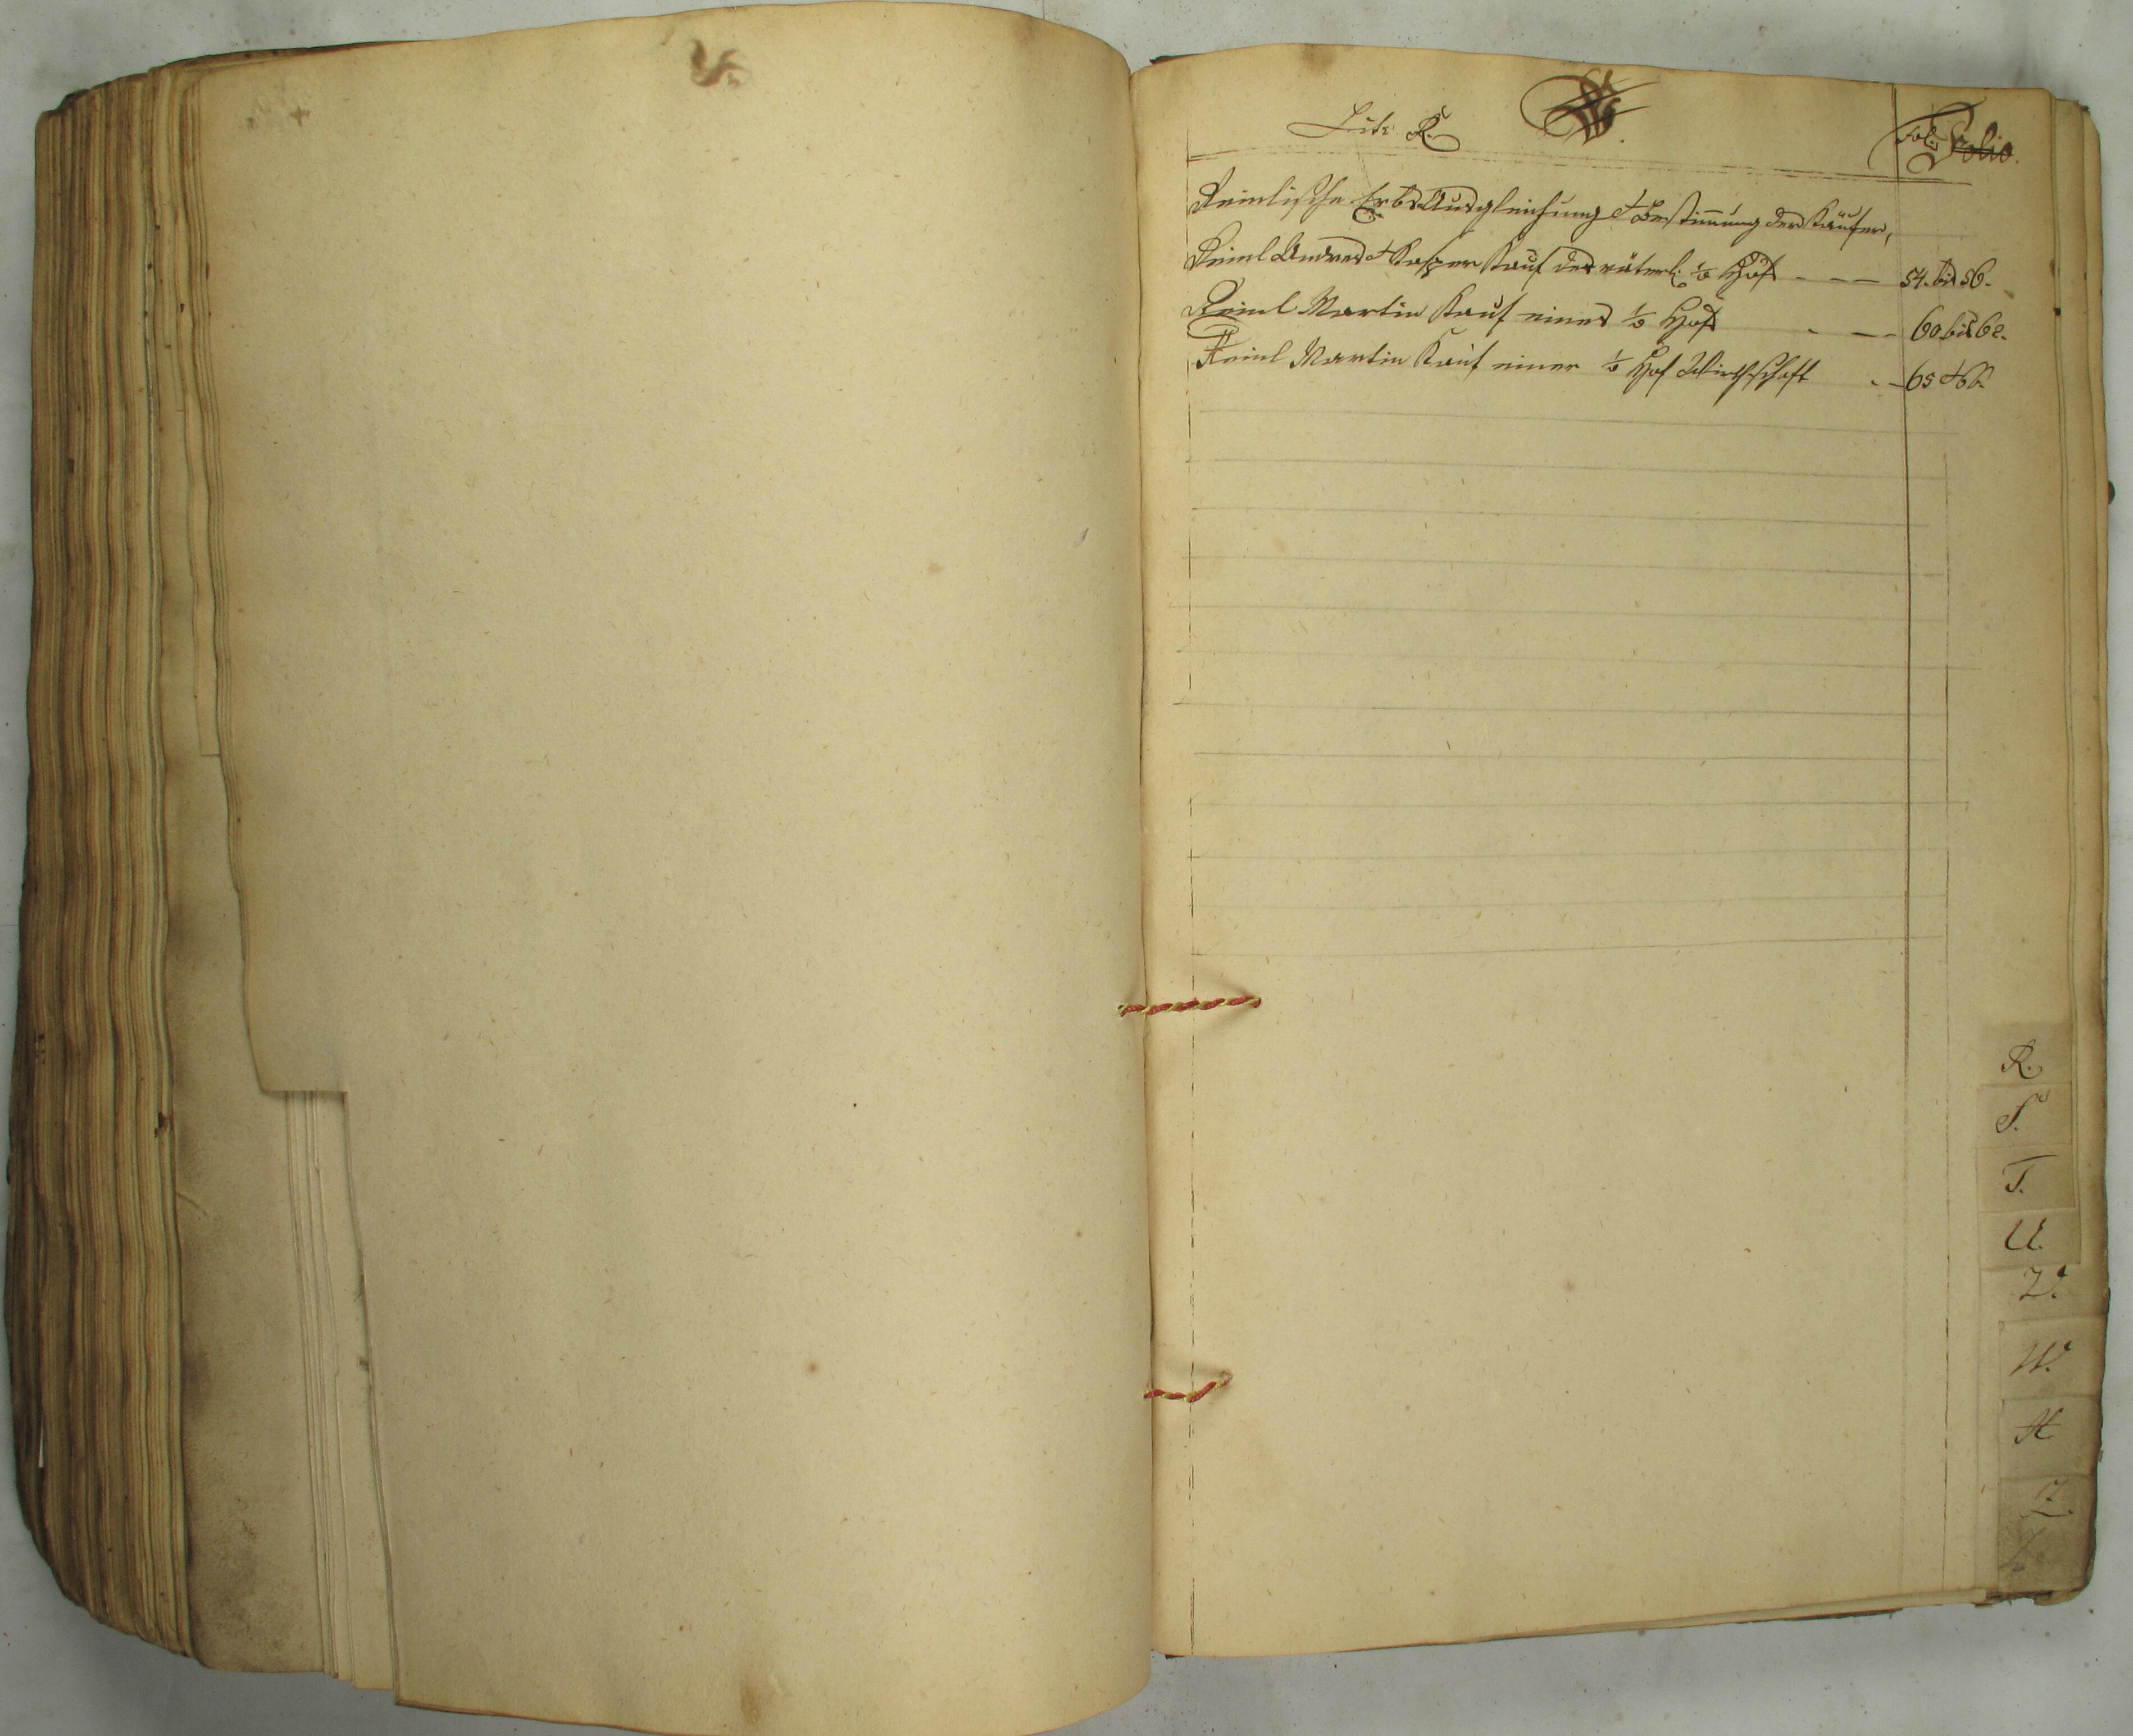 Lit: R.
Fol: Folio.
Reimlische Erbs Ausgleichung & Bestimmung der Käufer,
Reiml Andres & Kasper Kauf des väterl: ½ Hofs - - - 54. bis 56.
Reiml Martin Kauf eines ½ Hofs - - 60 bis 62.
Reiml Martin Kauf einer ½ Hof Wirthschaft - - 65 & 66.
R.
S.
T.
U.
W.
Z.